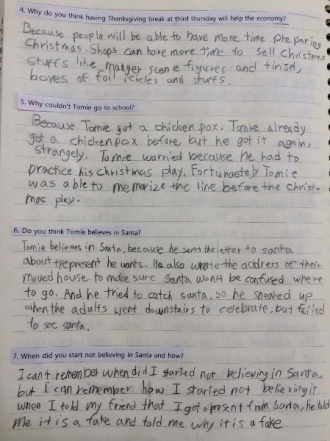 4. Why do you think having Thanksgiving break at third thursday will help the economy?
Because people will be able to have more time preparing
Christmas. Shops can have more time to sell Christmas
stuffs like manger scene figures and tinsel,
boxes of foil icicles and stuffs.
5. Why couldn't Tomie go to school?
Because Tomie got a chicken pox. Tomie already
got a chicken pox before, but he got it again,
strangely. Tomie worried because he had to
practice his christmas play. Fortunately Tomie
was able to memorize the line before the Christ-
mas play.
6. Do you think Tomie believes in Santa?
Tomie believes in Santa, because he sent the letter to santa
about the present he wants. He also wrote the address of their
moved house to make sure Santa won't be confused where
to go. And he tried to catch santa, so he sneaked up
when the adults went downstairs to celebrate, but failed
to see santa.
7. When did you start not believing in Santa and how?
I can't remember when did I started not believing in Santa,
but I can remember how I started not believing it.
When I told my friend that I get a present from Santa, he told
me it is a fake and told me why it is a fake